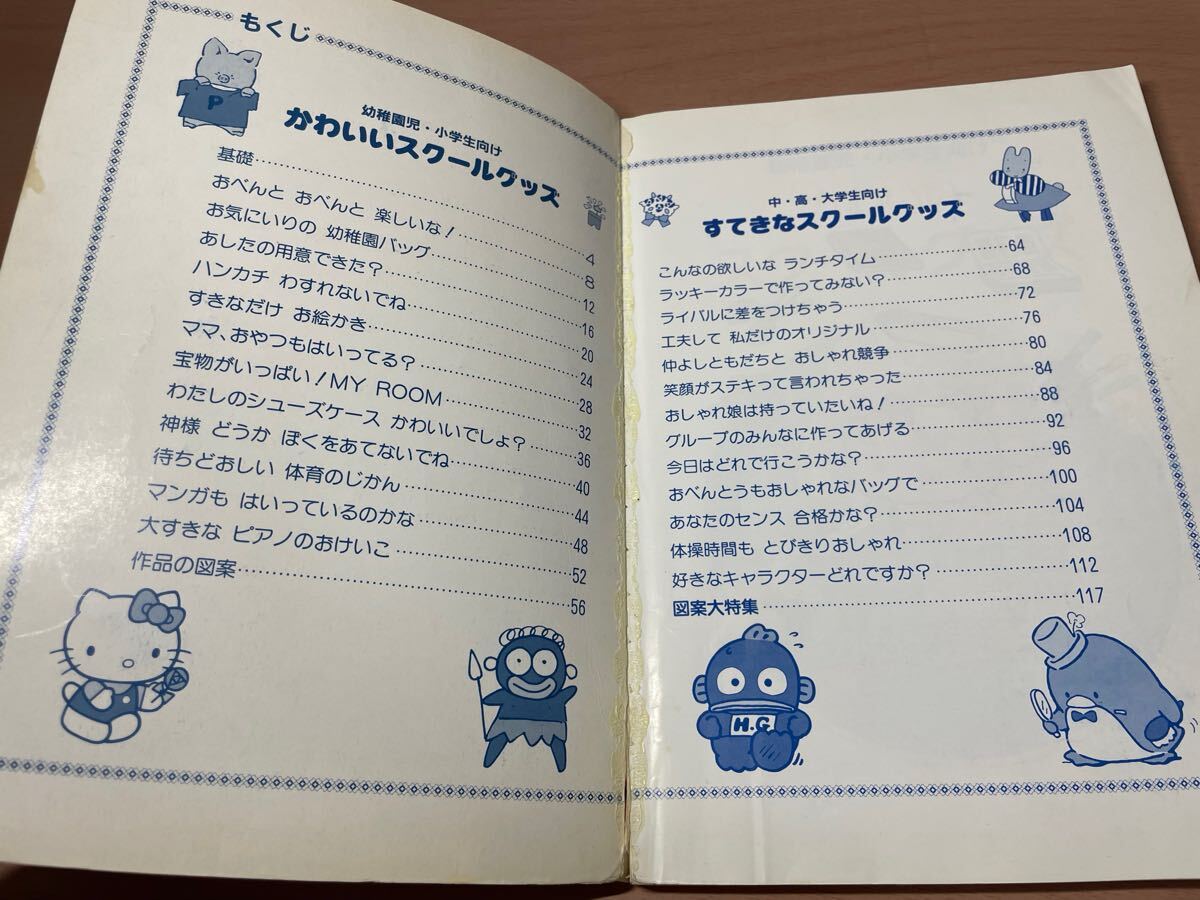 もくじ
P
幼稚園児・小学生向け
かわいいスクールグッズ
基礎……4
おべんと おべんと 楽しいな!……8
お気にいりの 幼稚園バッグ……12
あしたの用意できた?……16
ハンカチ わすれないでね……20
すきなだけ お絵かき……24
ママ、おやつもはいってる?……28
宝物がいっぱい!MY ROOM……32
わたしのシューズケース かわいいでしょ?……36
神様 どうか ぼくをあてないでね……40
待ちどおしい 体育のじかん……44
マンガも はいっているのかな……48
大すきな ピアノのおけいこ……52
作品の図案……56
中・高・大学生向け
すてきなスクールグッズ
こんなの欲しいな ランチタイム……64
ラッキーカラーで作ってみない?……68
ライバルに差をつけちゃう……72
工夫して 私だけのオリジナル……76
仲よしともだちと おしゃれ競争……80
笑顔がステキって言われちゃった……84
おしゃれ娘は持っていたいね!……88
グループのみんなに作ってあげる……92
今日はどれで行こうかな?……96
おべんとうもおしゃれなバッグで……100
あなたのセンス 合格かな?……104
体操時間も とびきりおしゃれ……108
好きなキャラクターどれですか?……112
図案大特集……117
H.G